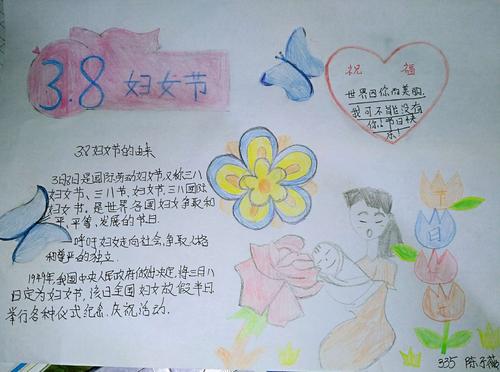 3.8 妇女节
祝 福
世界因你而美丽.
我可不能没有
你!节日快
乐!
3.8妇女节的由来
3月8日是国际劳动妇女节又称三八
妇女节、三八节、妇女节、三八国际
妇女节，是世界各国妇女争取和
平、平等、发展的节日.
一呼吁妇女走向社会,争取人格
和尊严的独立.
1949年,我国中央人民政府做出决定,将三月八
日定为妇女节，该日全国妇女放假半日
举行各种仪式纪念、庆祝活动.
节
日
快
乐
335 陈子薇